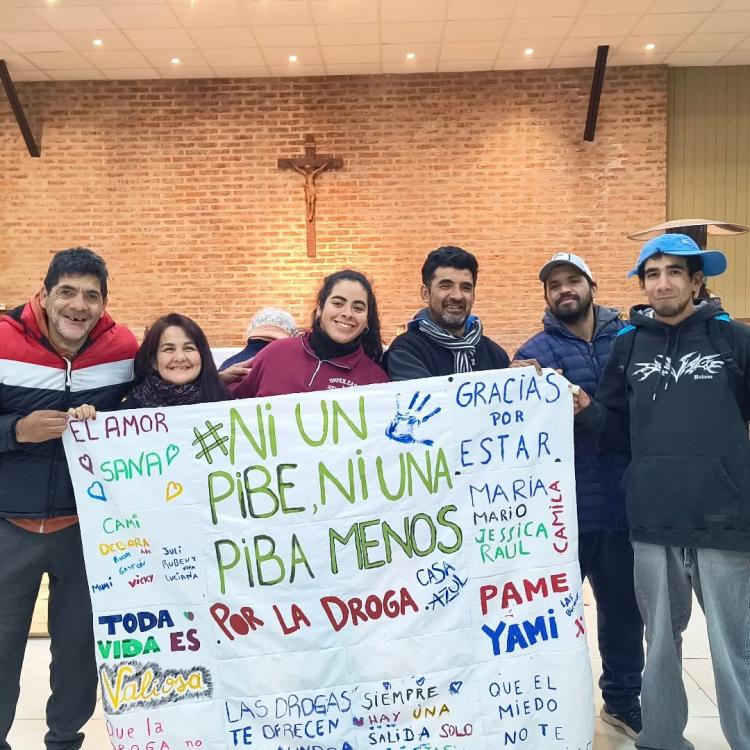 EL AMOR
SANA
CAMI
DEBORA
MUMI
VICKY
JULI
RUBEN
LUCIANA
TODA
VIDA ES
Valiosa
Que la
DROGA NO
#NI UN
PIBE, NI UNA
PIBA MENOS
POR LA DROGA
CASA
AZUL
LAS DROGAS
TE OFRECEN
SIEMPRE
HAY UNA
SALIDA SOLO
GRACIAS
POR
ESTAR
MARÍA
MARIO
JESSICA
RAUL
CAMILA
PAME
YAMI
QUE EL
MIEDO
NO TE